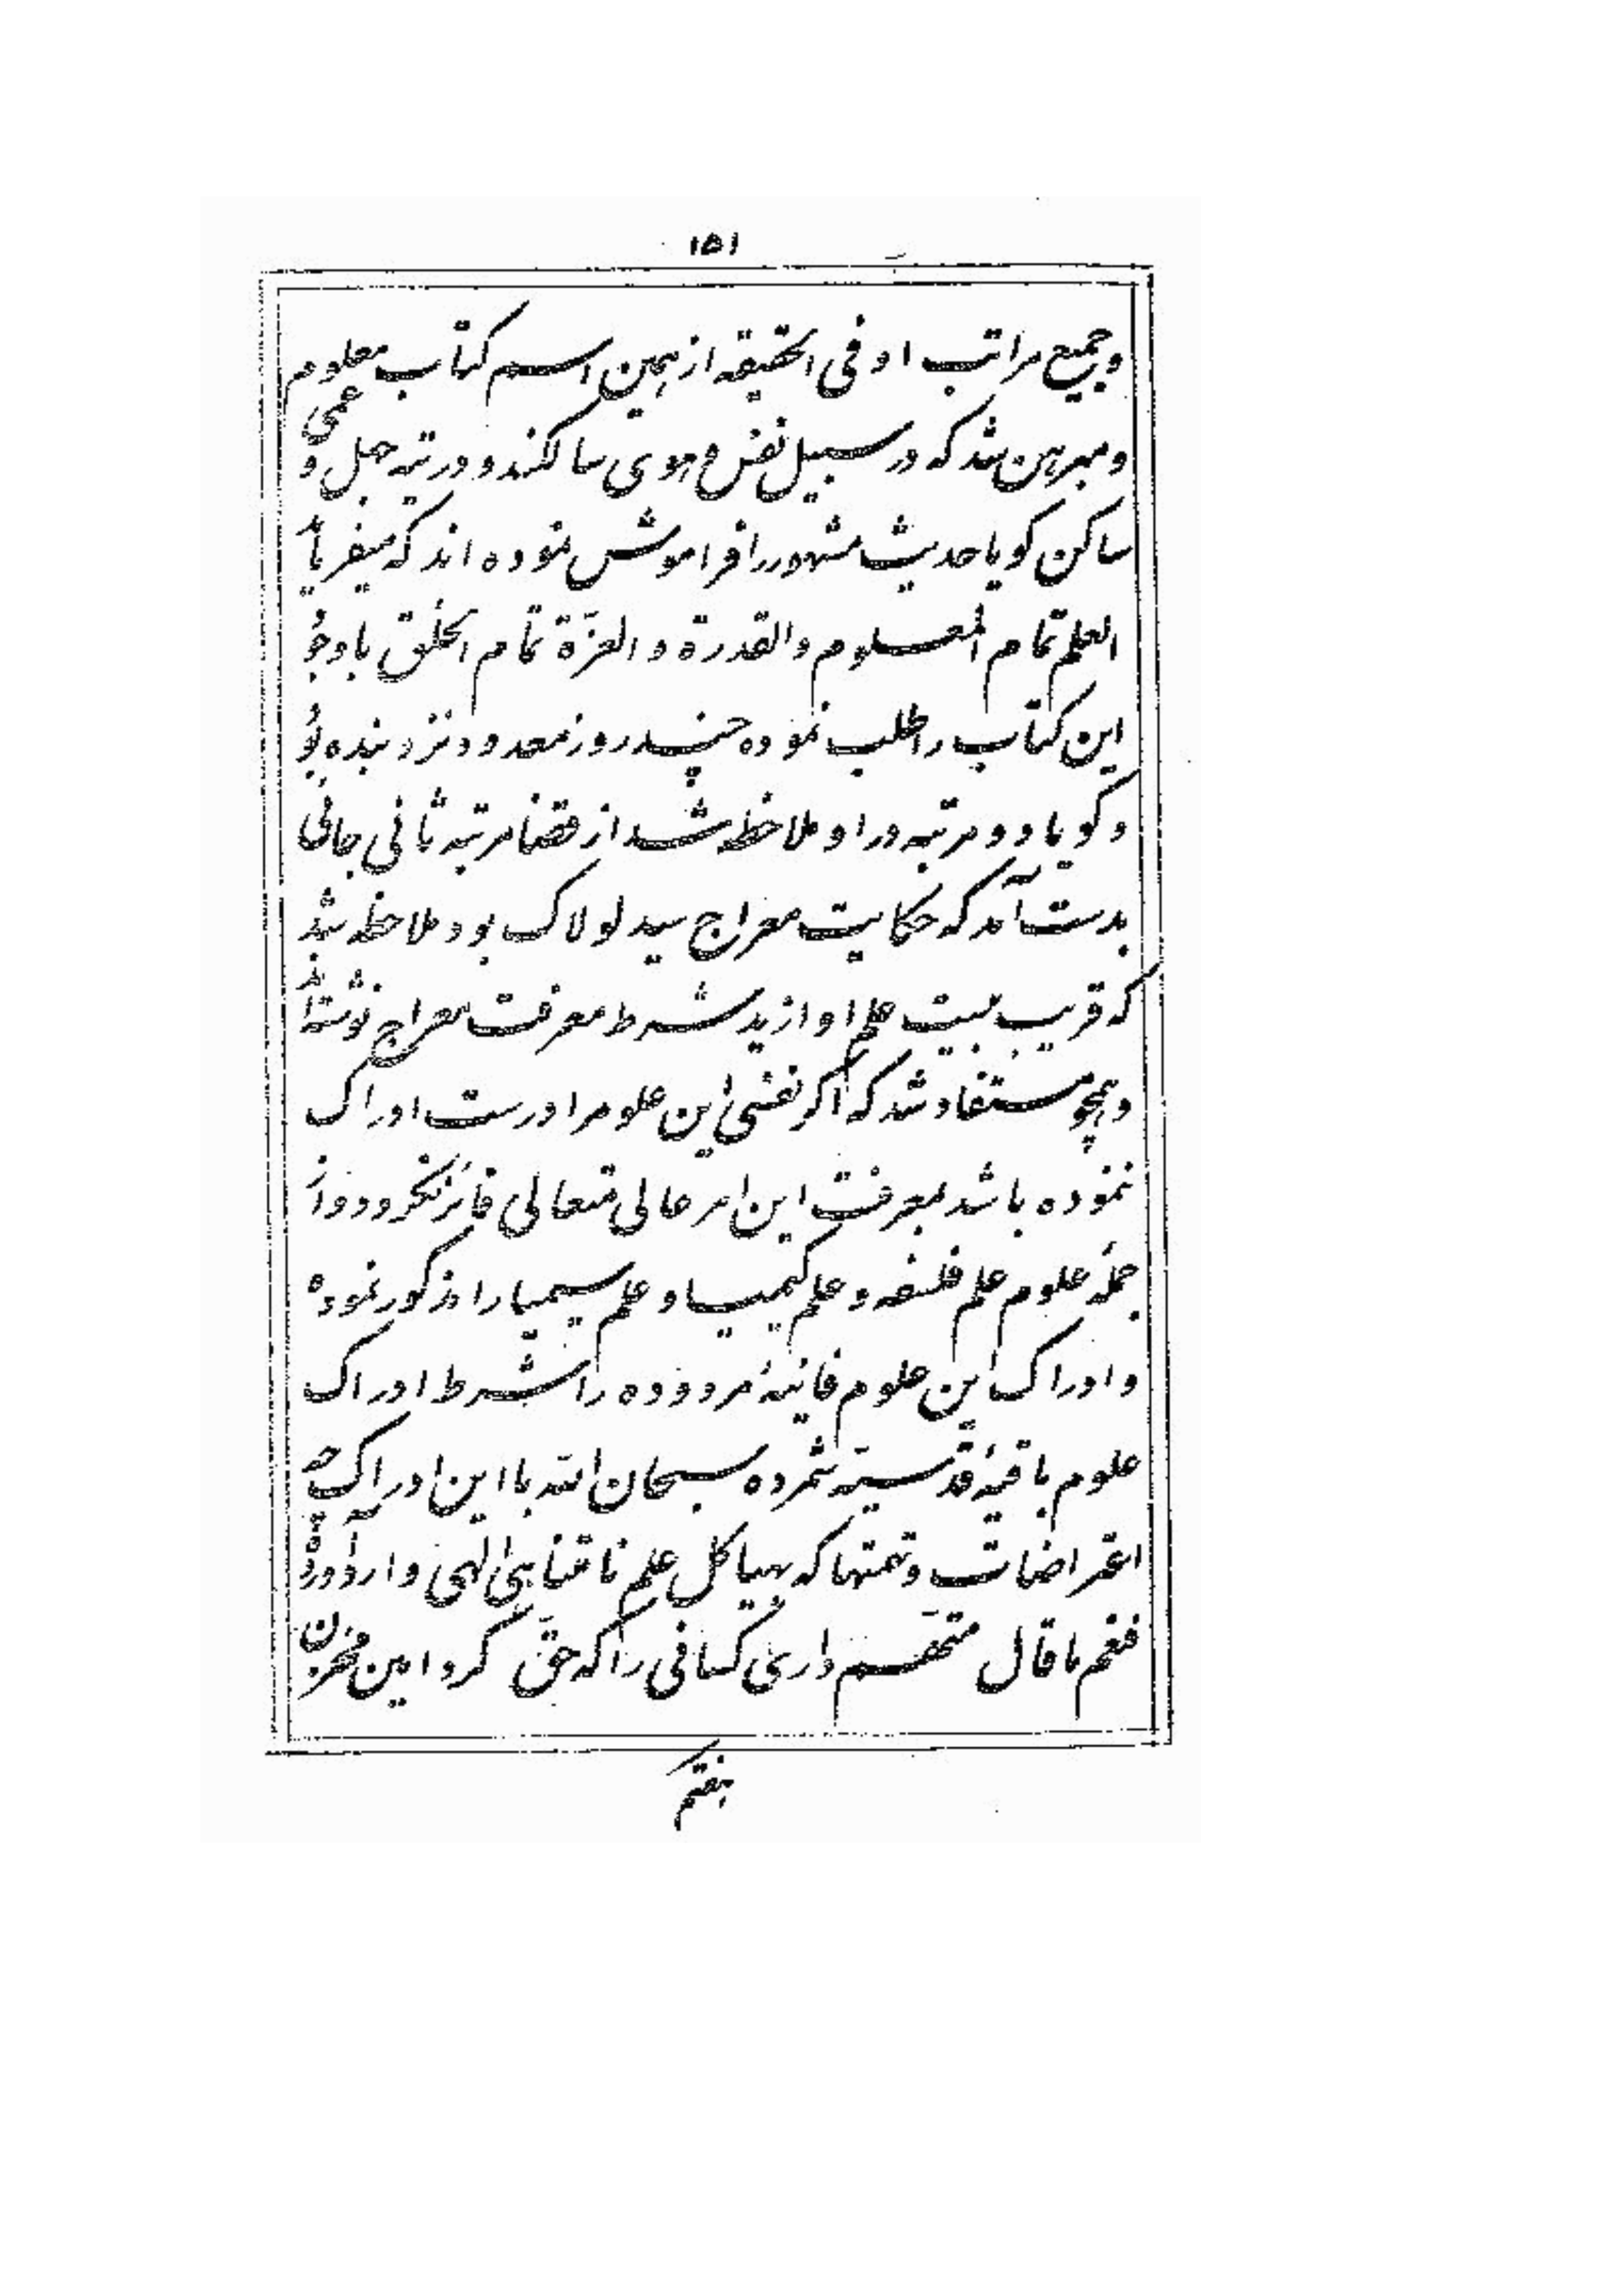 ١٥١
و جمیع مراتب او فی الحقیقه از همین اسم کتاب معلوم
و مبرهن شد که در سبیل نفس و هوی سالکند و در تیه جهل و عمی
ساکن گویا حدیث مشهور را فراموش نموده اند که میفرماید
العلم تمام المعلوم والقدرة و العزّة تمام الخلق با وجود
این کتاب را طلب نموده چند روز معدود نزد بنده بود
و گویا دو مرتبه در او ملاحظه شد از قضا مرتبه ثانی جائی
بدست آمد که حکایت معراج سید لولاک بود ملاحظه شد
که قریب بیست علم او ازید شرط معرفت معراج نوشته‌اند
و همچو مستفاد شد که اگر نفسی این علوم را درست ادراک
ننموده باشد بمعرفت این امر عالی متعالی فائز نگردد و از
جمله علوم علم فلسفه و علم کیمیا و علم سیمیا را مذکور نموده
و ادراک این علوم فانیهٔ مردوده را شرط ادراک
علوم باقیهٔ قدسیّه شمرده سبحان الله با این ادراک چه
اعتراضات و تهمتها که بهیاکل علم نامتناهی الهی وارد آورده
فنعم ما قال متّهم داری کسانی را که حقّ کرد امین مخزن
هفتم